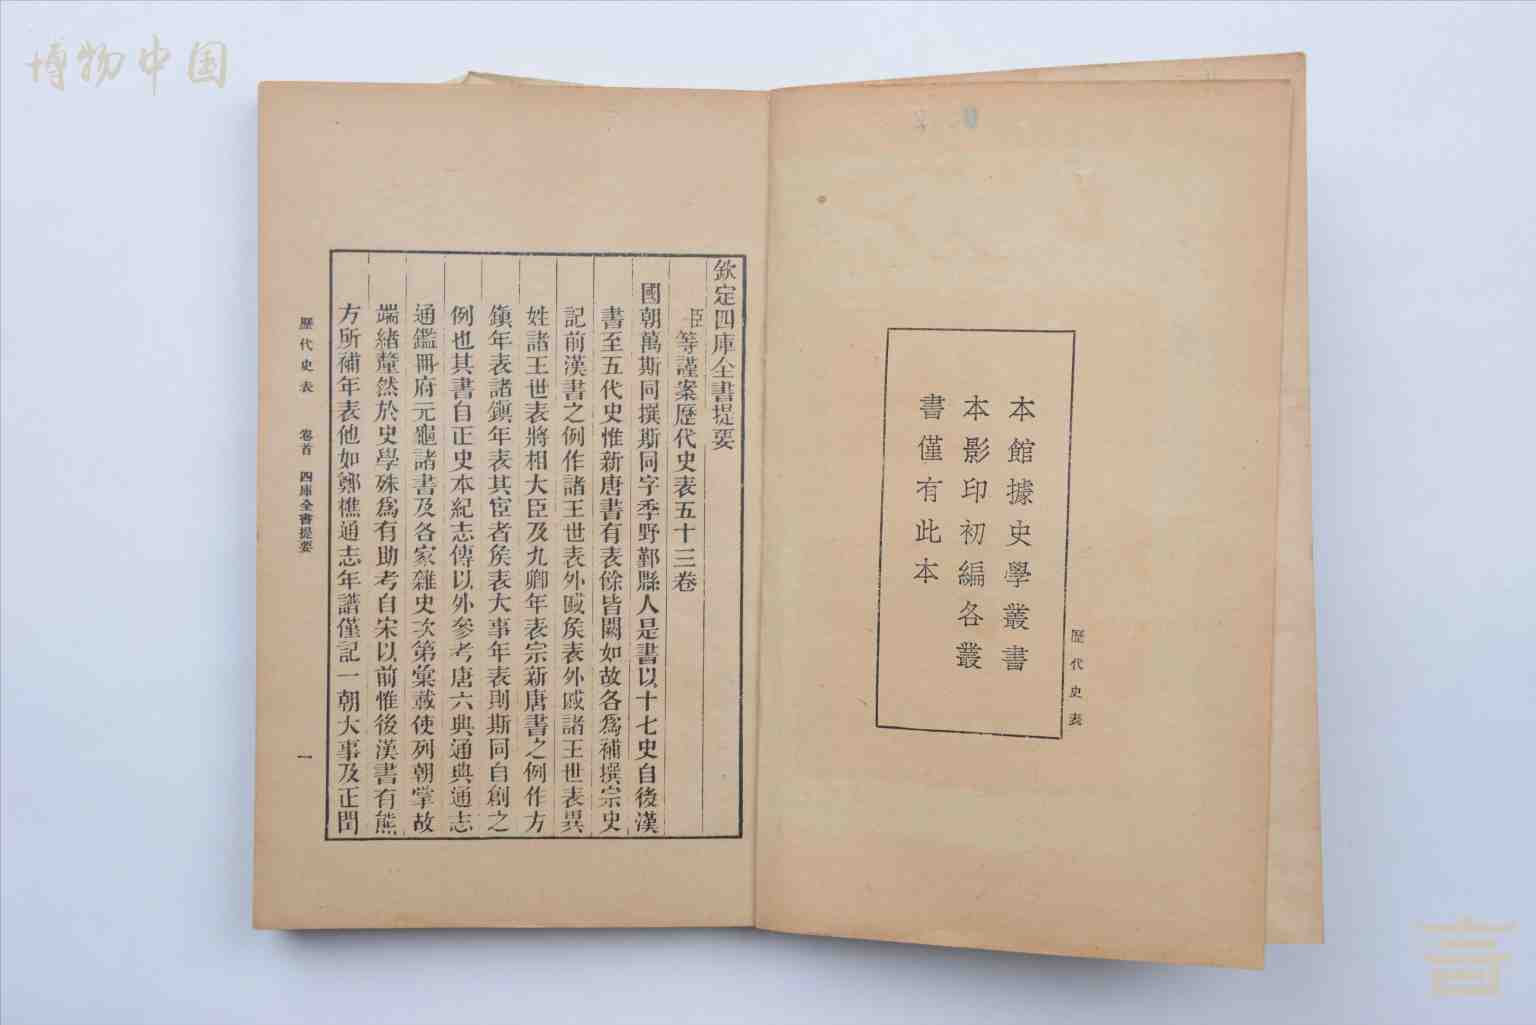 博物中国
本館據史學叢書
本影印初編各叢
書僅有此本
歷代史表
欽定四庫全書提要
臣等謹案歷代史表五十三卷
國朝萬斯同撰斯同字季野鄞縣人是書以十七史自後漢
書至五代史惟新唐書有表餘皆闕如故各爲補撰宗史
記前漢書之例作諸王世表外戚矦表外戚諸王世表異
姓諸王世表將相大臣及九卿年表宗新唐書之例作方
鎭年表諸鎭年表其宦者矦表大事年表則斯同自創之
例也其書自正史本紀志傳以外參考唐六典通典通志
通鑑冊府元龜諸書及各家雜史次第彙載使列朝掌故
端緒釐然於史學殊爲有助考自宋以前惟後漢書有熊
方所補年表他如鄭樵通志年譜僅記一朝大事及正閏
歷代史表 卷首 四庫全書提要 一